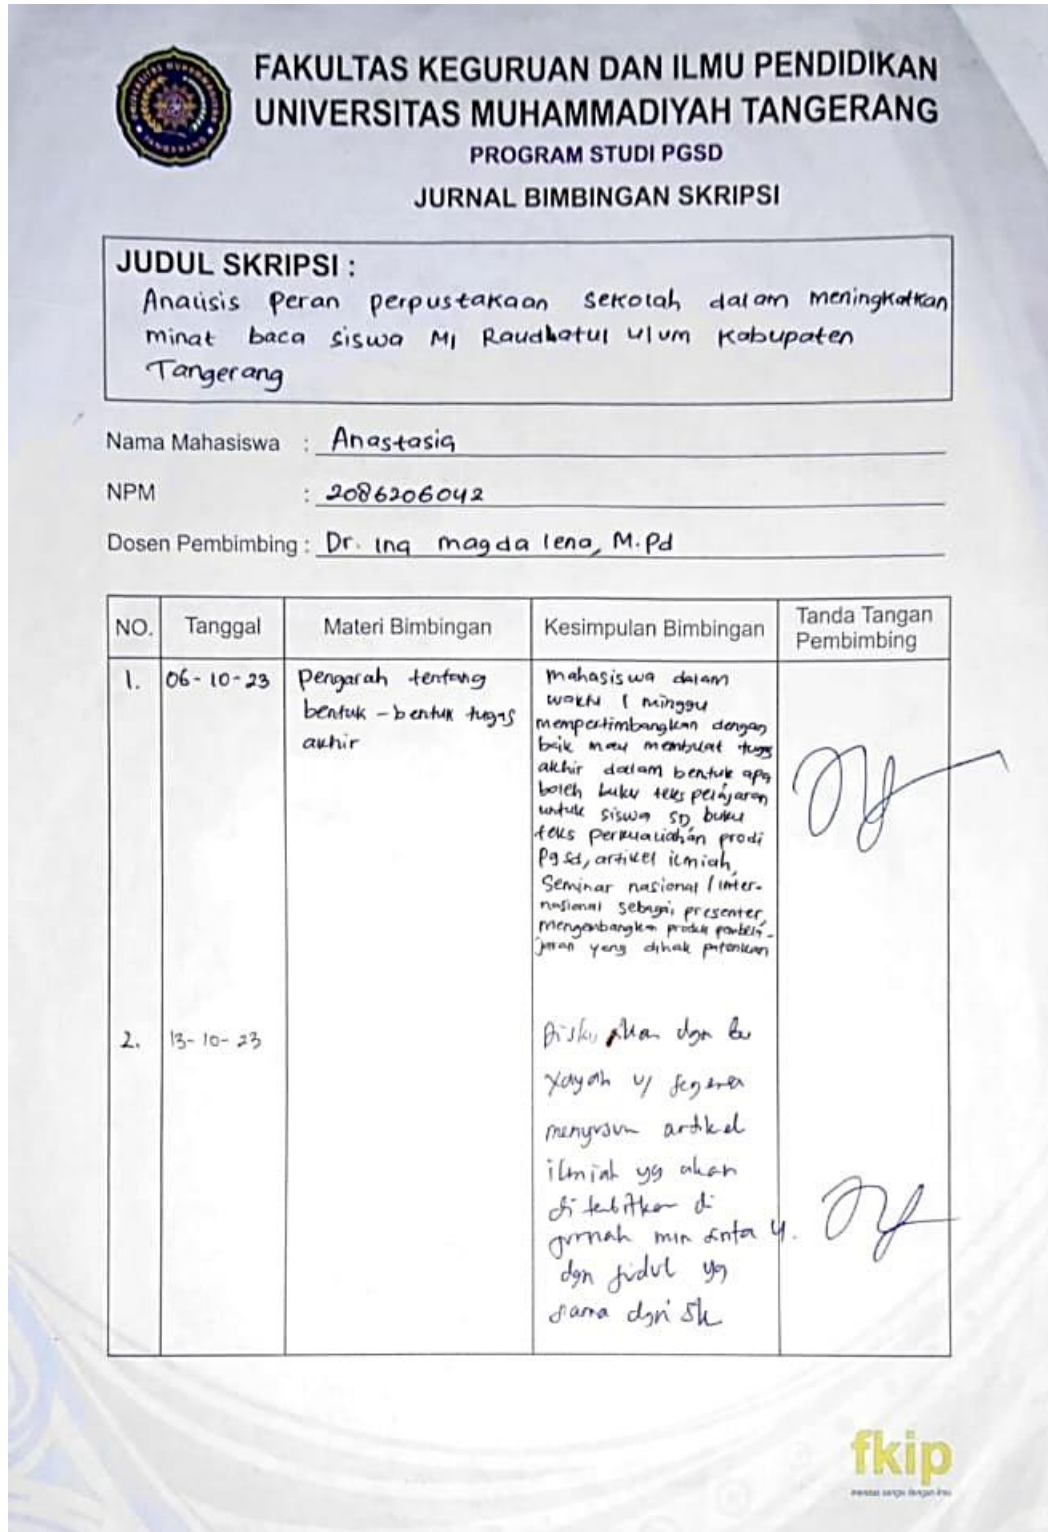 FAKULTAS KEGURUAN DAN ILMU PENDIDIKAN
UNIVERSITAS MUHAMMADIYAH TANGERANG
PROGRAM STUDI PGSD
JURNAL BIMBINGAN SKRIPSI
JUDUL SKRIPSI :
Analisis peran perpustakaan sekolah dalam meningkatkan
minat baca siswa MI Raudhatul Ulum Kabupaten
Tangerang
Nama Mahasiswa : Anastasia
NPM : 2086206042
Dosen Pembimbing : Dr. Ina magda lena, M.Pd
NO. Tanggal Materi Bimbingan Kesimpulan Bimbingan Tanda Tangan
Pembimbing
1. 06-10-23 Pengarah tentang
bentuk-bentuk tugas
akhir
mahasiswa dalam
waktu 1 minggu
mempertimbangkan dengan
baik mau membuat tugas
akhir dalam bentuk apa
boleh buku teks pelajaran
untuk siswa SD buku
teks perkualiahan prodi
Pgsd, artikel ilmiah,
Seminar nasional / inter-
nasional sebagai presenter,
mengembangkan produk pembela-
jaran yang dihak patenkan
2. 13-10-23
Diskusikan dgn bu
u/ segera
menyusun artikel
ilmiah yg akan
diterbitkan di
min sinta 4.
dgn judul yg
sama dgn SK
fkip